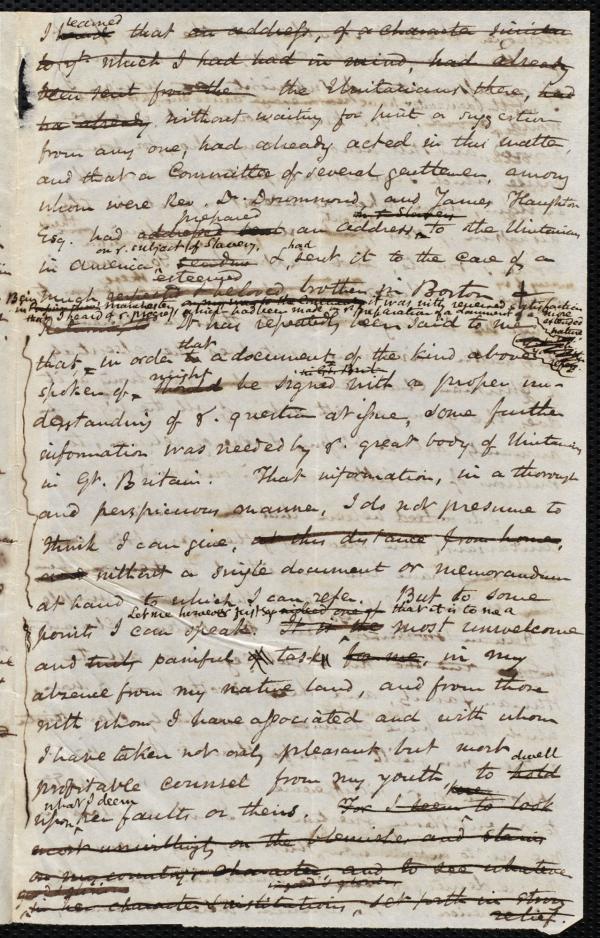 learned
I heard that an address, of a character similar
to yt. which I had had in mind, had already
been sent from the the Unitarians there, had
had already without waiting for hint or suggestion
from any one, had already acted in this matter,
and that a Committee of several gentlemen, among
whom were Rev. Dr. Drummond and James Haughton
prepared
Esq. had addressed sent an address, to the Unitarians
on ye. subject of Slavery, had
in America, & sent it to the care of a
esteemed
much beloved brother in Boston
Being in Manchester it was with renewed satisfaction
that I heard of ye. progress which had been made in ye. preparation of a document of a more extended nature
It has repeatedly been said to me
that
that, in order to a document of the kind above
might in Gt. Brit.
spoken of, should be signed with a proper un-
derstanding of ye. question at issue, some further
information was needed by ye. great body of Unitarians
in Gt. Britain. That information, in a thorough
and perspicuous manner, I do not presume to
think I can give, at this distance from home,
and without a single document or memorandum
at hand to which I can refer. But to some
Let me however just say that it is to me a
points I can speak. It is the most unwelcome
and truly painful task, for me, in my
absence from my native land, and from those
with whom I have associated and with whom
I have taken not only pleasant but most
dwell
profitable counsel from my youth, to hold
what I deem
upon her faults or theirs. For I seem to look
most unwillingly on the blemishes and stains
on my country's character, and to see whatever
in her character & institutions, set forth in strong
relief.